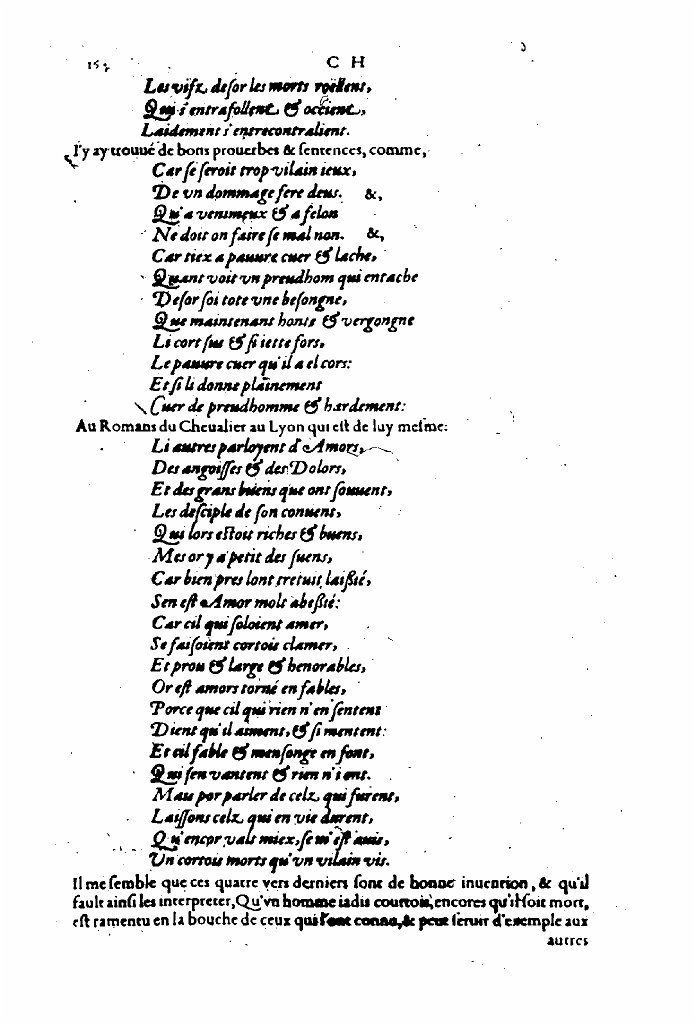 C H
Les vifz desor les morts roellent,
Qui s'entrafollent & occient,
Laidement s'entrecontralient.
I'y ay trouué de bons prouerbes & sentences, comme,
Car se seroit trop vilain ieux,
De vn dommage fere deus. &,
Qu'a venimeux & a felon
Ne doit on faire se mal non. &,
Car tiex a pauure cuer & lache,
Quant voit vn preudhom qui entache
Desor soi tote vne besongne,
Que maintenant honte & vergongne
Li cort sus & si iette fors,
Le pauure cuer qu'il a el cors:
Et si li donne plainement
Cuer de preudhomme & hardement:
Au Romans du Cheualier au Lyon qui est de luy mesme:
Li autres parloyent d'Amors,
Des angoisses & des Dolors,
Et des grans biens que ont souuent,
Les desciple de son conuent,
Qui lors estoit riches & buens,
Mes or y a petit des suens,
Car bien pres lont tretuit laißié,
Sen est Amor molt abeßié:
Car cil qui soloient amer,
Se faisoient cortois clamer,
Et prou & large & henorables,
Or est amors torné en fables,
Porce que cil qui rien n'en sentent
Dient qu'il aiment, & si mentent:
Et cil fable & mensonge en font,
Qui sen vantent & rien n'i ont.
Mais por parler de celz qui furent,
Laissons celz qui en vie durent,
Qu'encor vals miex, se m'est auis,
Un cortois morts qu'vn vilain vis.
Il me semble que ces quatre vers derniers sont de bonne inuention, & qu'il
fault ainsi les interpreter, Qu'vn homme iadis courtois, encores qu'il soit mort,
est ramentu en la bouche de ceux qui l'ont connu, & peut seruir d'exemple aux
autres